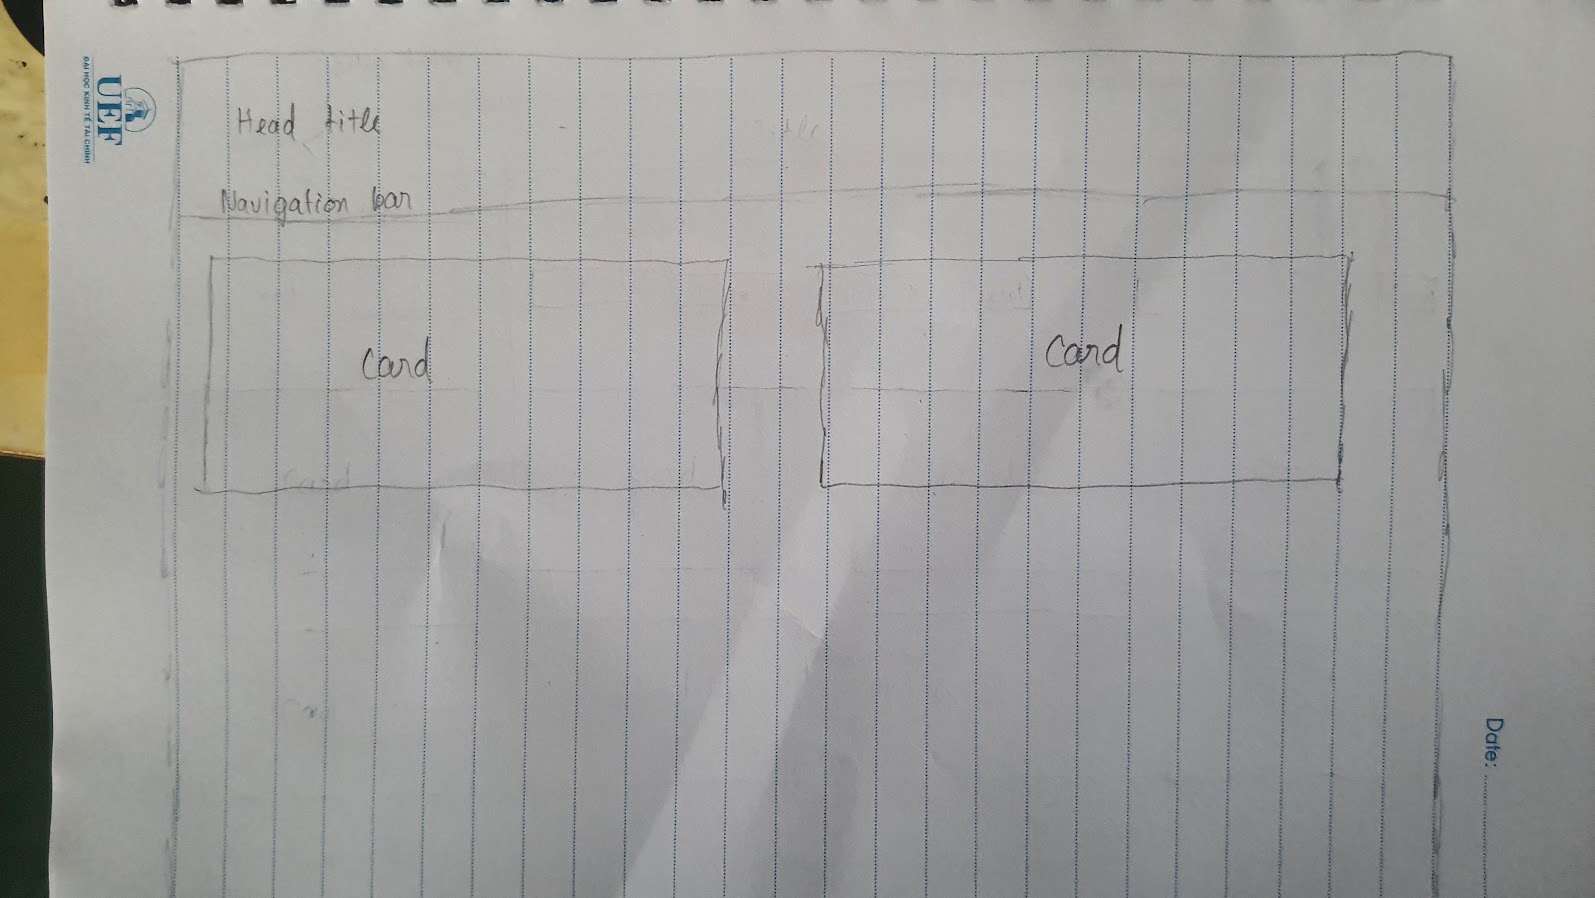 UEF
ĐẠI HỌC KINH TẾ TÀI CHÍNH
Head title
Navigation bar
Card
Card
Date: